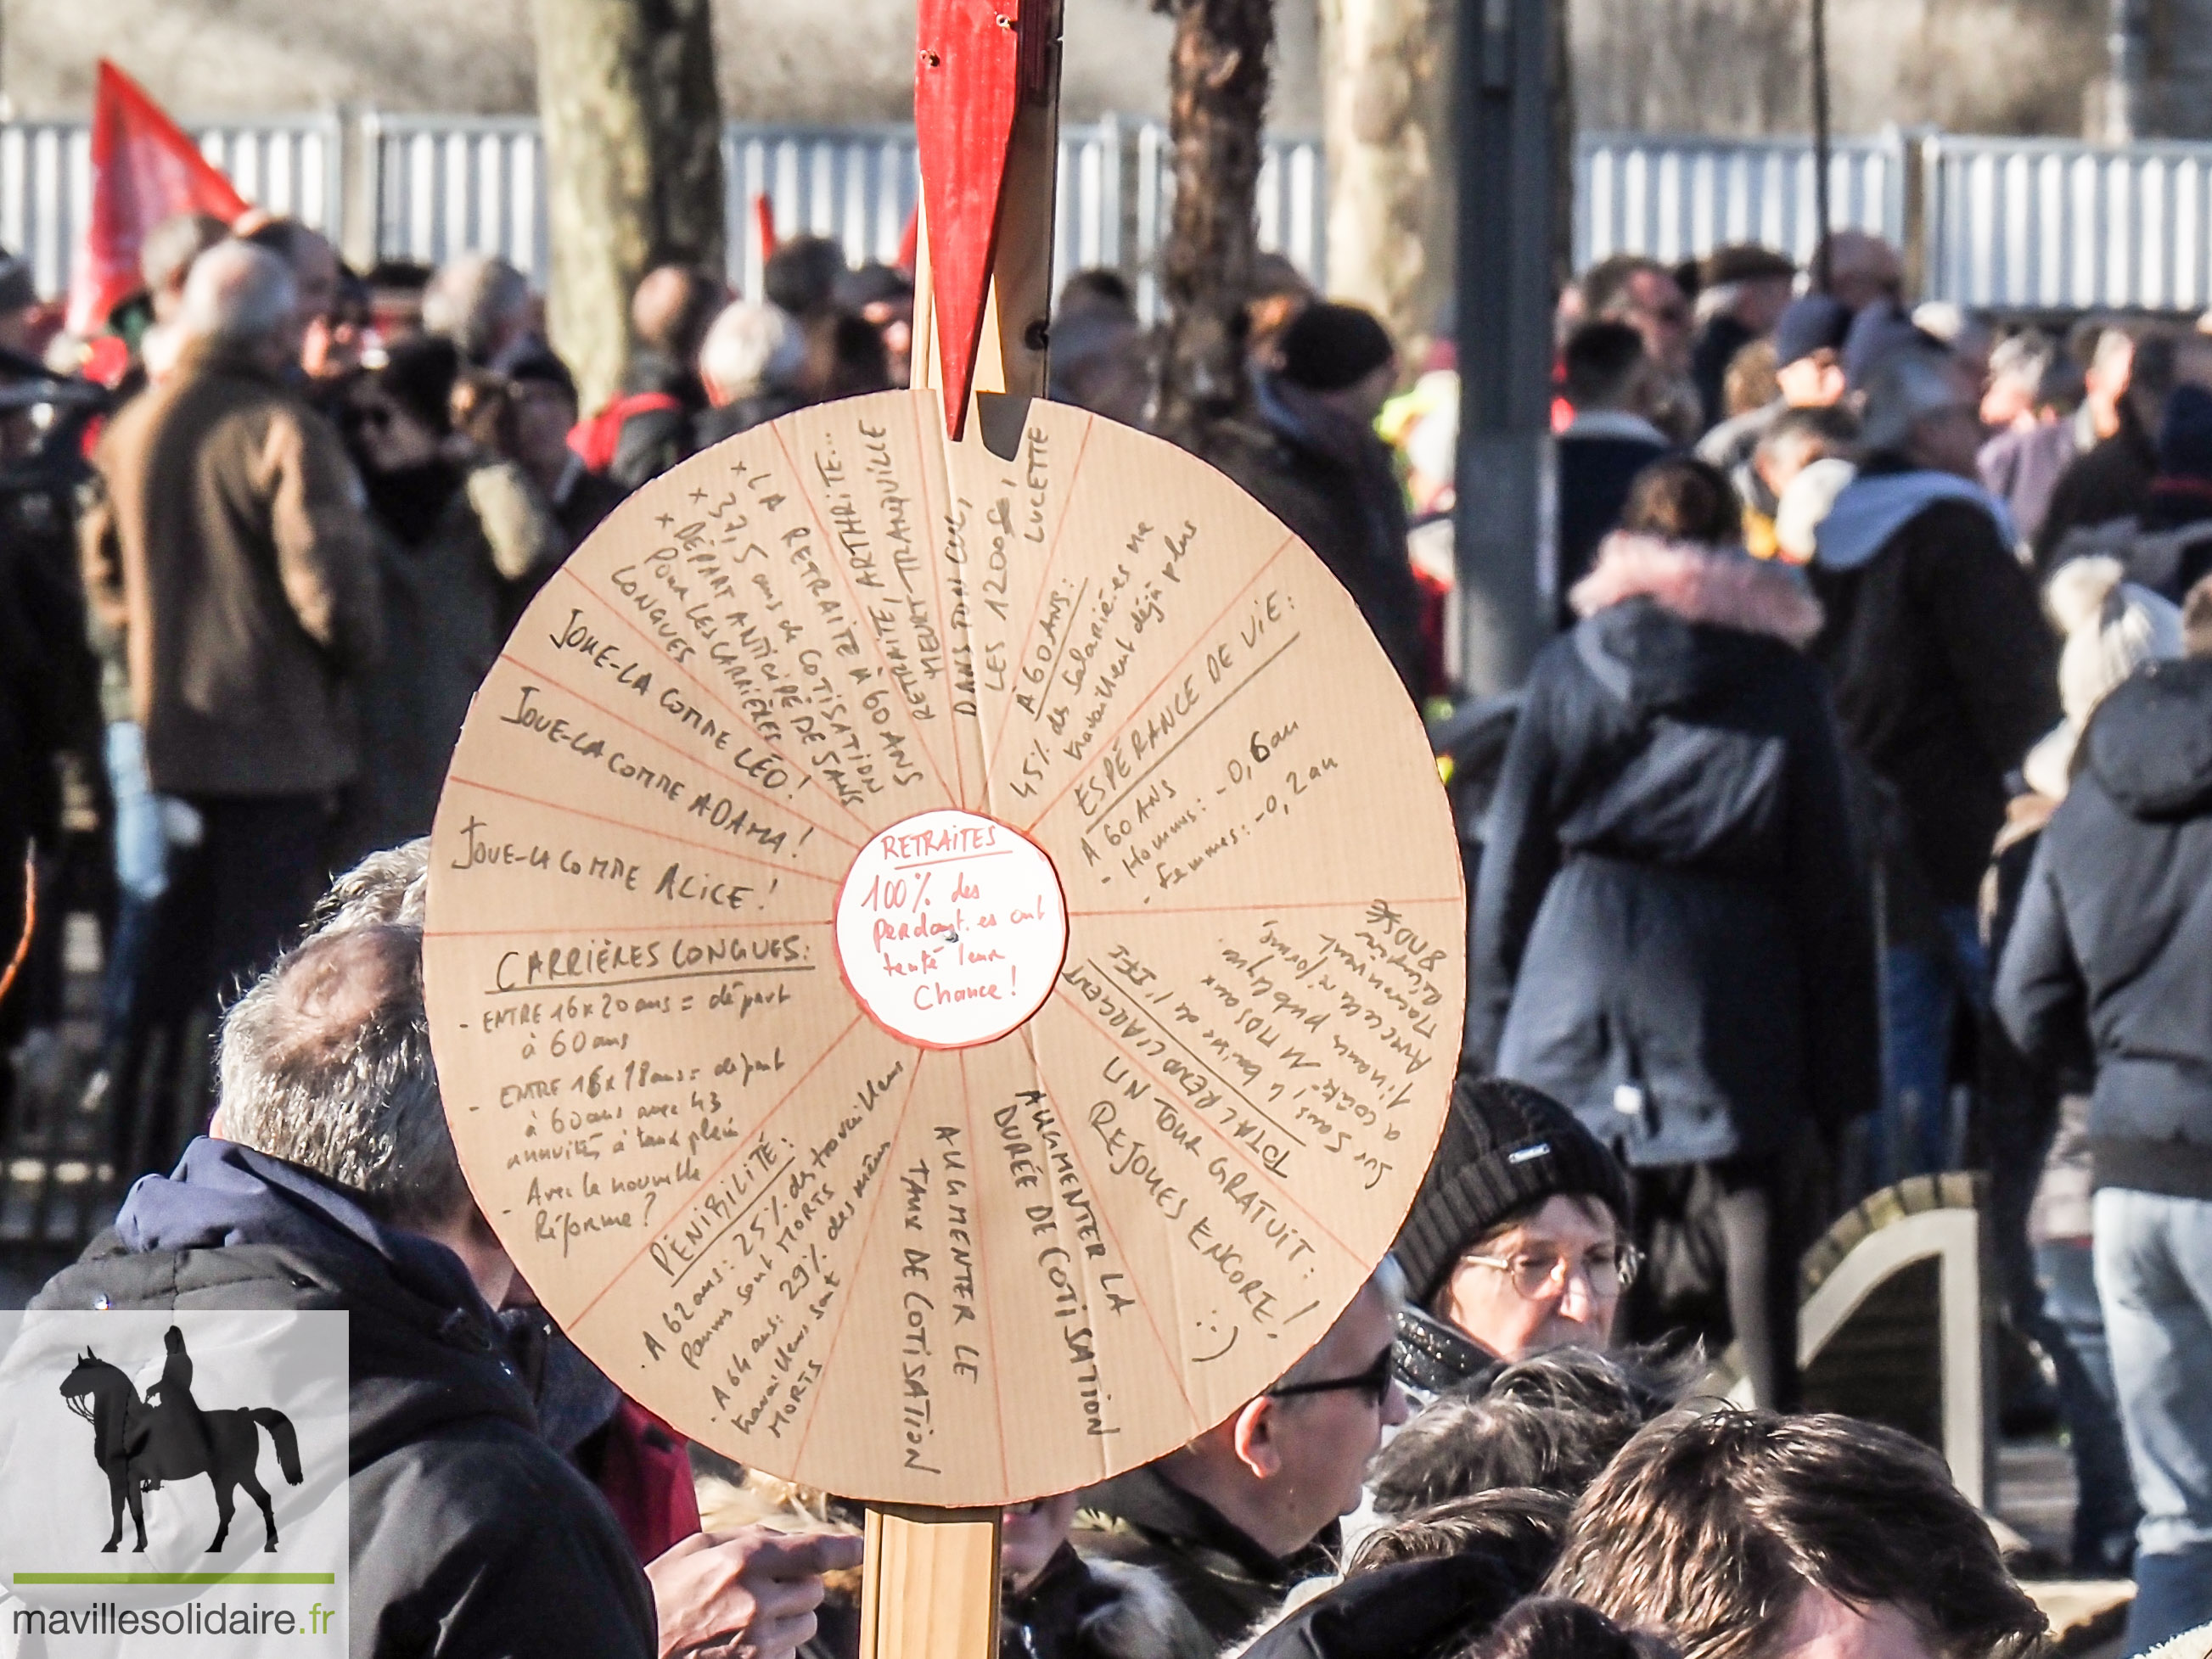 RETRAITES
100% des
perdant.es ont
tenté leur
Chance!
DANS TON CUL,
LES 1200€,
LUCETTE
À 60 ANS:
45% des salarié-es ne
travaillent déjà plus
ESPÉRANCE DE VIE:
A 60 ANS
- Hommes: -0,6 an
- Femmes: -0,2 an
TOTAL REND L'ARGENT
Sur 5 ans, la baisse de l'IFI
a coûté 11 MDS aux
finances publiques.
Avec cette réforme,
Macron veut
8 MDS€
UN TOUR GRATUIT:
REJOUES ENCORE!
:-)
AUGMENTER LA
DURÉE DE COTISATION
AUGMENTER LE
TAUX DE COTISATION
PÉNIBILITÉ:
. A 62 ans: 25% des travailleurs
pauvres sont MORTS
. A 64 ans: 29% des mêmes
travailleurs sont
MORTS
CARRIÈRES LONGUES:
- ENTRE 16 & 20 ans = départ
à 60 ans
- ENTRE 16 & 18 ans = départ
à 60 ans avec 43
annuités à taux plein
- Avec la nouvelle
Réforme?
JOUE-LA COMME ALICE!
JOUE-LA COMME ADAMA!
JOUE-LA COMME LÉO!
x LA RETRAITE À 60 ANS
x 37,5 ans de COTISATION
x DÉPART ANTICIPÉ DE 5 ANS
POUR LES CARRIÈRES
LONGUES
RETRAITE, ARTHRITE...
MEURT-TRANQUILLE
mavillesolidaire.fr